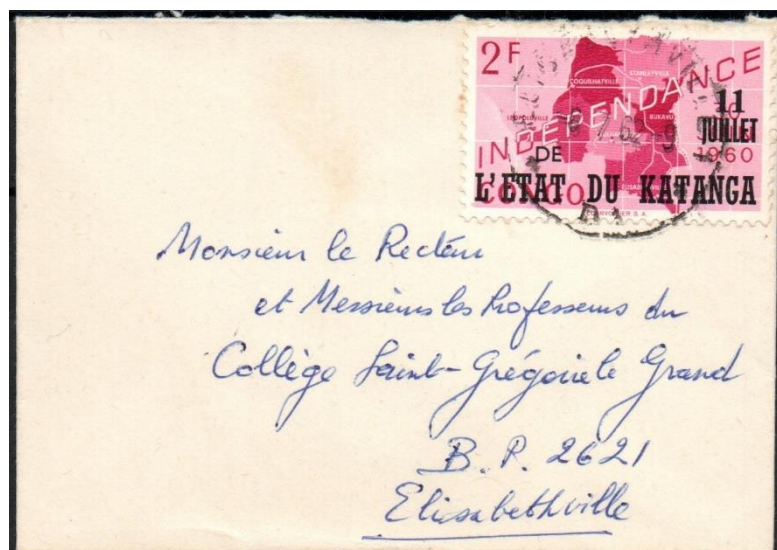 2F
INDEPENDANCE
STANLEYVILLE
COQUILHATVILLE
LEOPOLDVILLE
BUKAVU
11
JUILLET
1960
DE
CONGO
L'ETAT DU KATANGA
Monsieur le Recteur
et Messieurs les Professeurs du
Collège Saint-Grégoire le Grand
B.P. 2621
Elisabethville